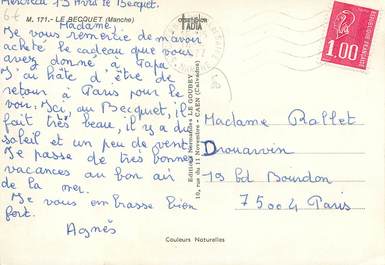 Mercredi 13 Avril le Becquet.
6€
M. 171.- LE BECQUET (Manche)
Madame,
Je vous remercie de m'avoir
acheté le cadeau que vous
avez donné à Papa.
J'ai hâte d'être de
retour à Paris pour le
voir. Ici, au Becquet, il
fait très beau, il y a du
soleil et un peu de vent.
Je passe de très bonnes
vacances au bon air
de la mer.
Je vous embrasse bien
fort.
Agnès
Editions Normandes LE GOUBEY
10, rue du 11 Novembre - CAEN (Calvados)
1,00
Madame Rallet
Drouarvin
19 bd Bourdon
75004 Paris
Couleurs Naturelles